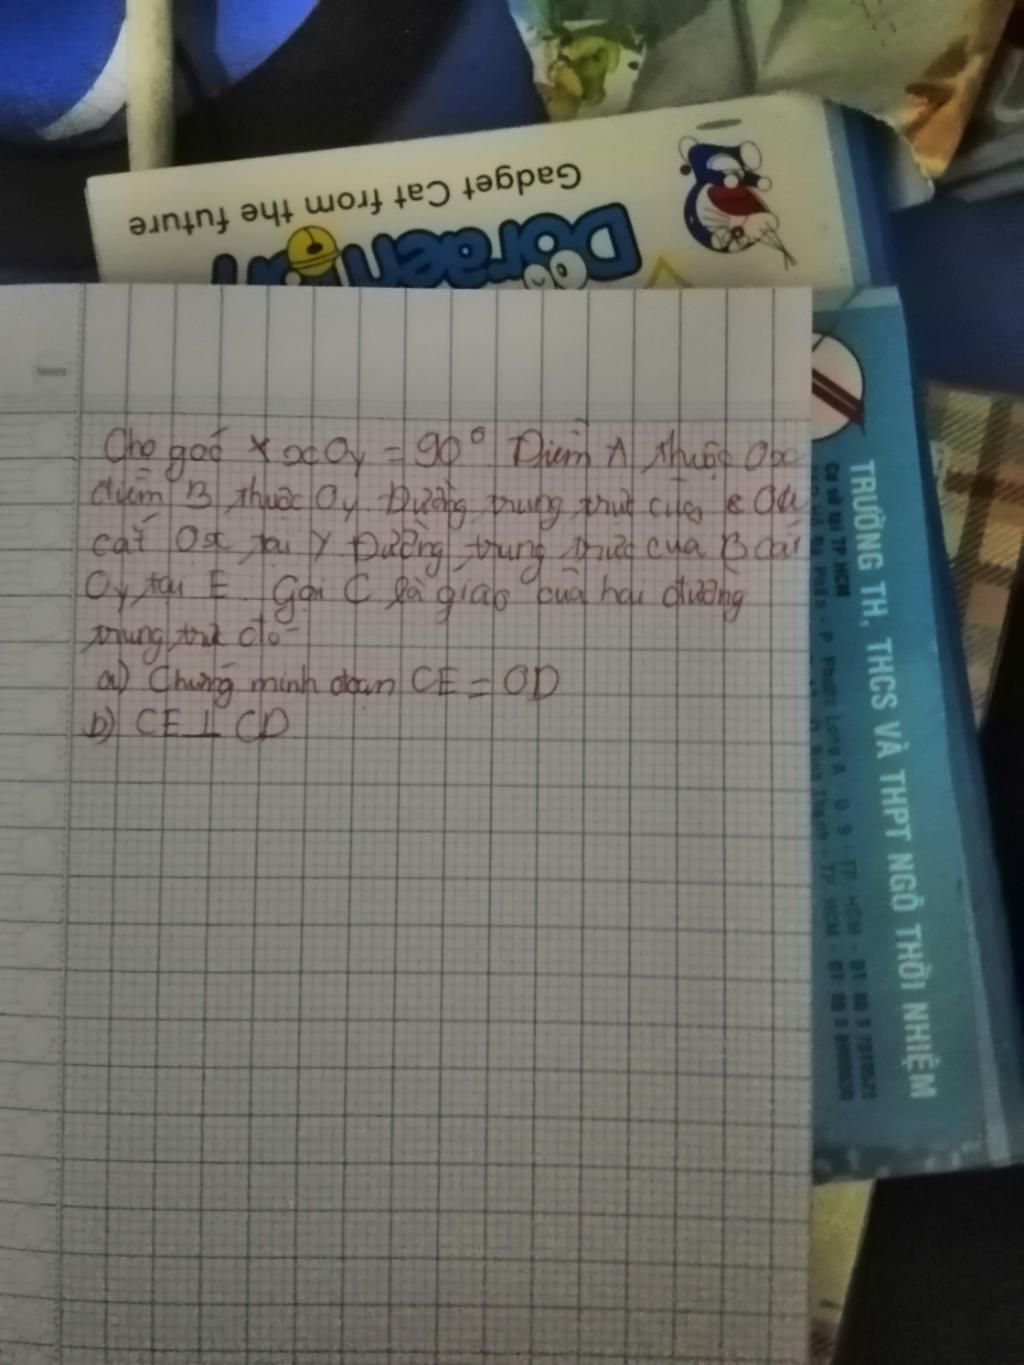 Gadget Cat from the future
Doraemon
Cho goế xOy = 90° Điểm A thuộc Ox
điểm B thuộc Oy Đường trung trực của OA
cắt Ox tại Y Đường trung trực của B cắt
Oy tại E. Gọi C là giao của hai đường
trung trực đó
a) Chứng minh đoạn CE = OD
b) CE ⊥ CD
TRƯỜNG TH, THCS VÀ THPT NGÔ THỜI NHIỆM
Cơ sở tại TP.HCM